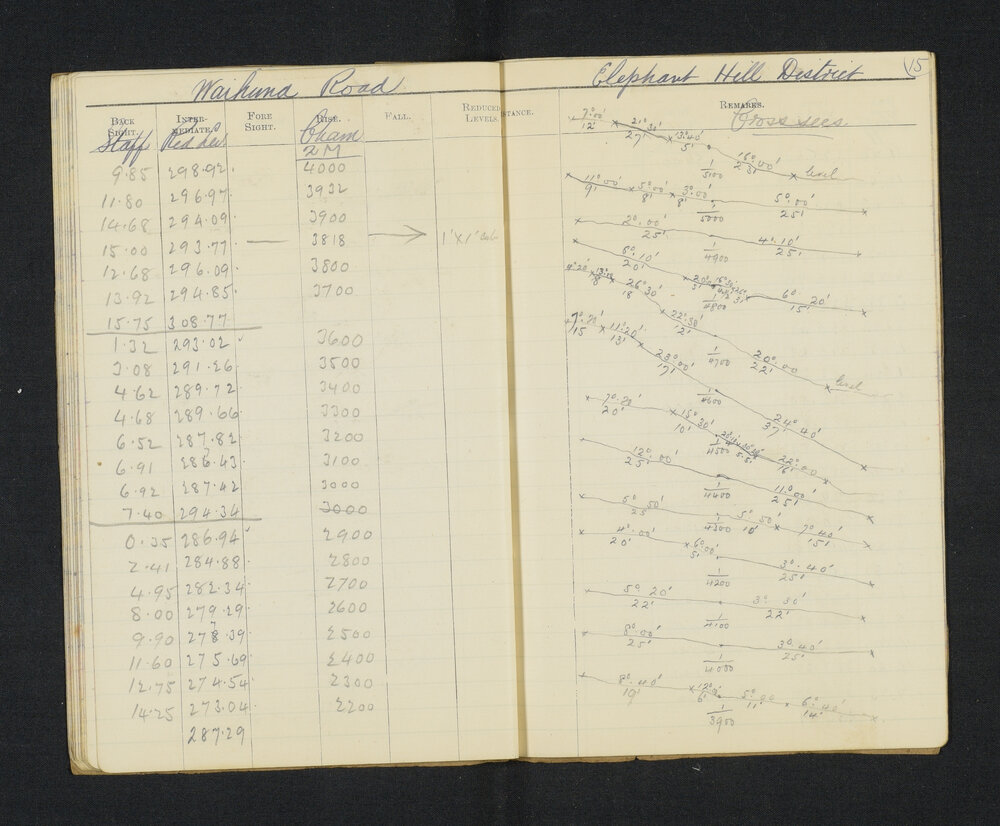 Waihuna Road
BACK SIGHT. INTER- MEDIATE. FORE SIGHT. RISE. FALL. REDUCED LEVELS.
Staff Red Lev Cham
2 M
9.85 298.92 4000
11.80 296.97 3932
14.68 294.09 3900
15.00 293.77 — 3818 → 1'x1'
12.68 296.09 3800
13.92 294.85 3700
15.75 308.77
1.32 293.02 3600
3.08 291.26 3500
4.62 289.72 3400
4.68 289.66 3300
6.52 287.82 3200
6.91 286.43 3100
6.92 287.42 3000
7.40 294.34 3000
0.35 286.94 2900
2.41 284.88 2800
4.95 282.34 2700
8.00 279.29 2600
9.90 278.39 2500
11.60 275.69 2400
12.75 274.54 2300
14.25 273.04 2200
287.29
Elephant Hill District 15
STANCE. REMARKS.
Cross secs
7°.00' 21°.30' 3°.40' 16°.00' level
12' 27' 5' 1/5100 23'
11°.00' 5°.00' 3°.00' 5°.00'
9' 8' 8' 1/5000 25'
2°.00' 4°.10'
25' 1/4900 25'
6°.10' 6°.20'
20' 1/4800 15'
4°20' 26°30' 22°.30' 20°.00 level
8 18 12' 1/4700 22'
7°.20' 11°.20' 23°.00' 24°.40'
15 13' 17' 1/4600 37'
7°.20' 15°.30' 22°.00'
20' 10' 1/4500 16'
12°.00' 11°.00'
25' 1/4400 25'
5°.50' 5°.50' 7°.40'
25' 1/4300 10' 15'
4°.00' 6°.00' 3°.40'
20' 5' 1/4200 25'
5°.20' 3°.30'
22' 1/4100 22'
8°.00' 3°.40'
25' 1/4000 25'
8°.40' 12°.0' 5°.00' 6°.40'
19' 6' 1/3900 11' 14'